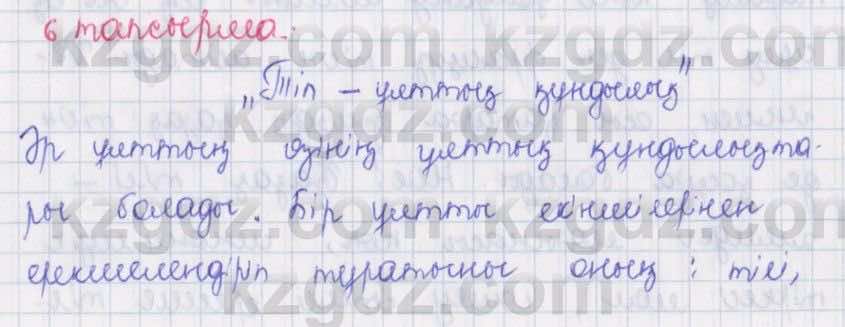 6 тапсырма.
„Тіл – ұлттық құндылық"
Әр ұлттың өзінің ұлттық құндылықта-
ры болады. Бір ұлтты екіншілерінен
ерекшелендіріп тұратыны оның : тілі,